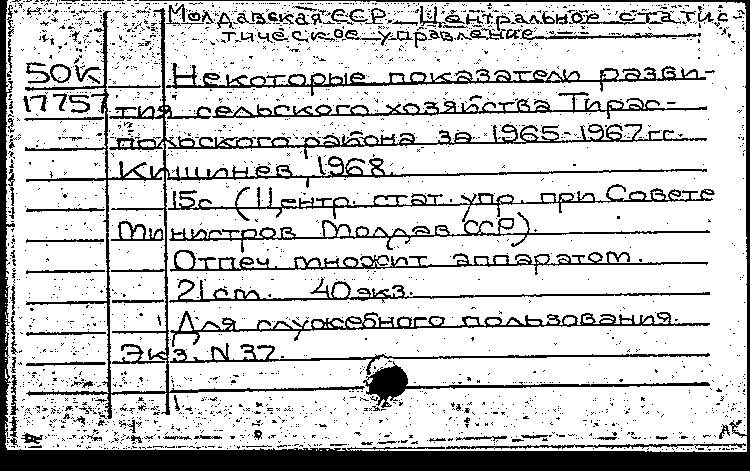 Молдавская ССР. Центральное статис-
тическое управление
50К Некоторые показатели разви-
17757 тия сельского хозяйства Тирас-
польского района за 1965-1967 гг.
Кишинев, 1968.
15с (Центр. стат. упр. при Совете
Министров Молдав. ССР).
Отпеч. множит. аппаратом.
21 см. 40 экз.
Для служебного пользования.
Экз. N 37.